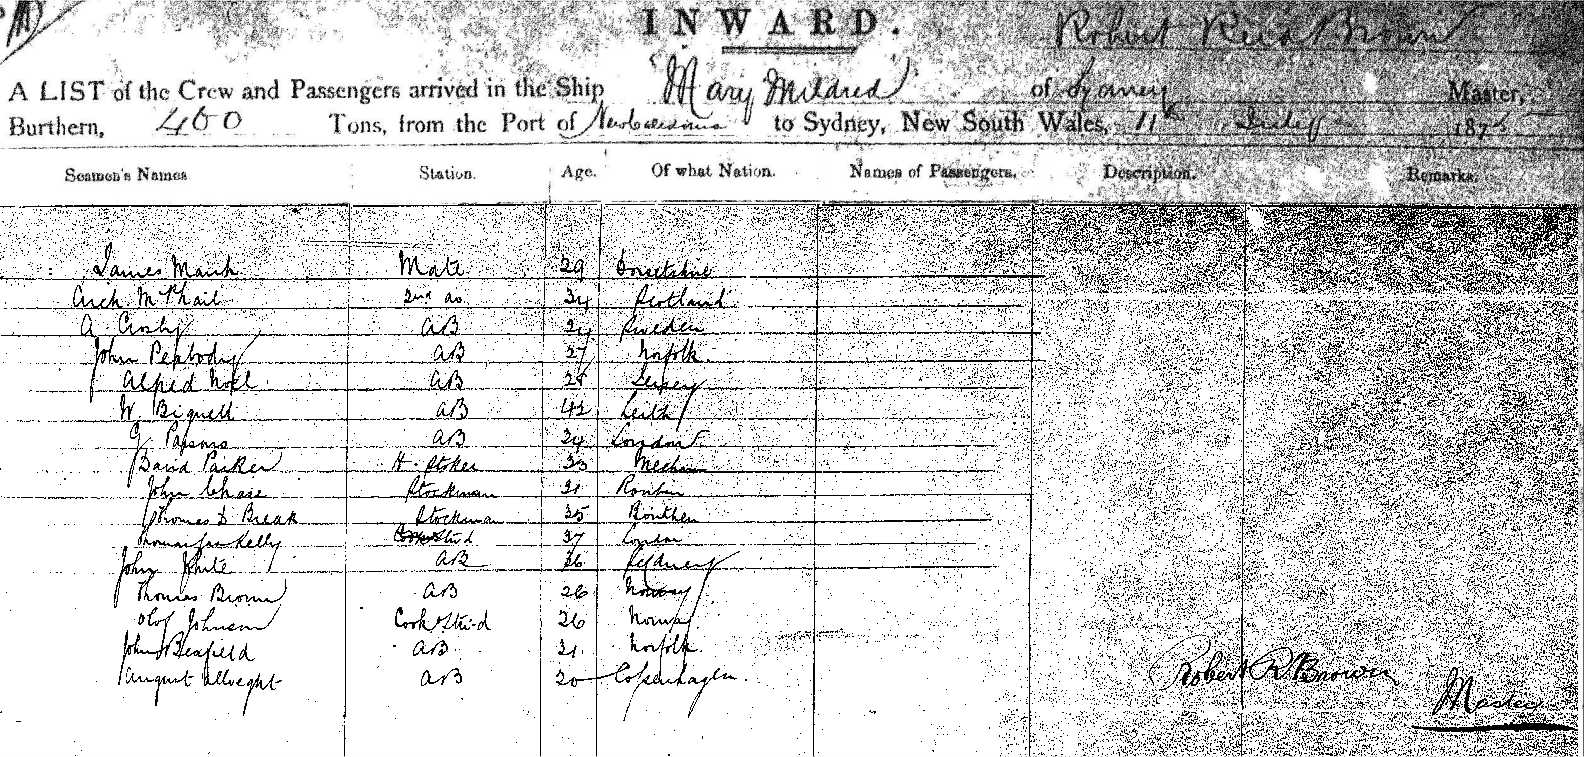 INWARD.
Robert Reid Brown
A LIST of the Crew and Passengers arrived in the Ship Mary Mildred of Sydney Master,
Burthern, 460 Tons, from the Port of New Caledonia to Sydney, New South Wales, 11th July 187
Seamen's Names Station. Age. Of what Nation. Names of Passengers. Description. Remarks.
James Mate 29 Dorsetshire
Arch McPhail 2nd do 34 Scotland
A. Crosby AB 24 Sweden
John Peabody AB 27 Norfolk
Alfred Noel AB 28 Jersey
W Bignell AB 42 Leith
G Parsons AB 24 London
David Parker H. Stoker 33
John Chase Stockman 21
Thomas D Break Stockman 35
Kelly Cook & Stwd 37 London
John White AB 36
Thomas Brown AB 26 Norway
Olof Johnson Cook & Stwd 26 Norway
John Benfield AB 21 Norfolk
August AB 20 Copenhagen.
Robert R. Brown
Master